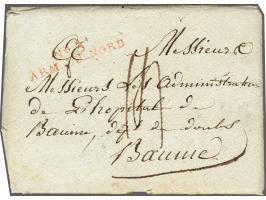 Messieurs
No. 4
ARM. DU NORD
Messieurs Les Administrateurs
de L'hopital de
Baume, dept de doubs
Baume